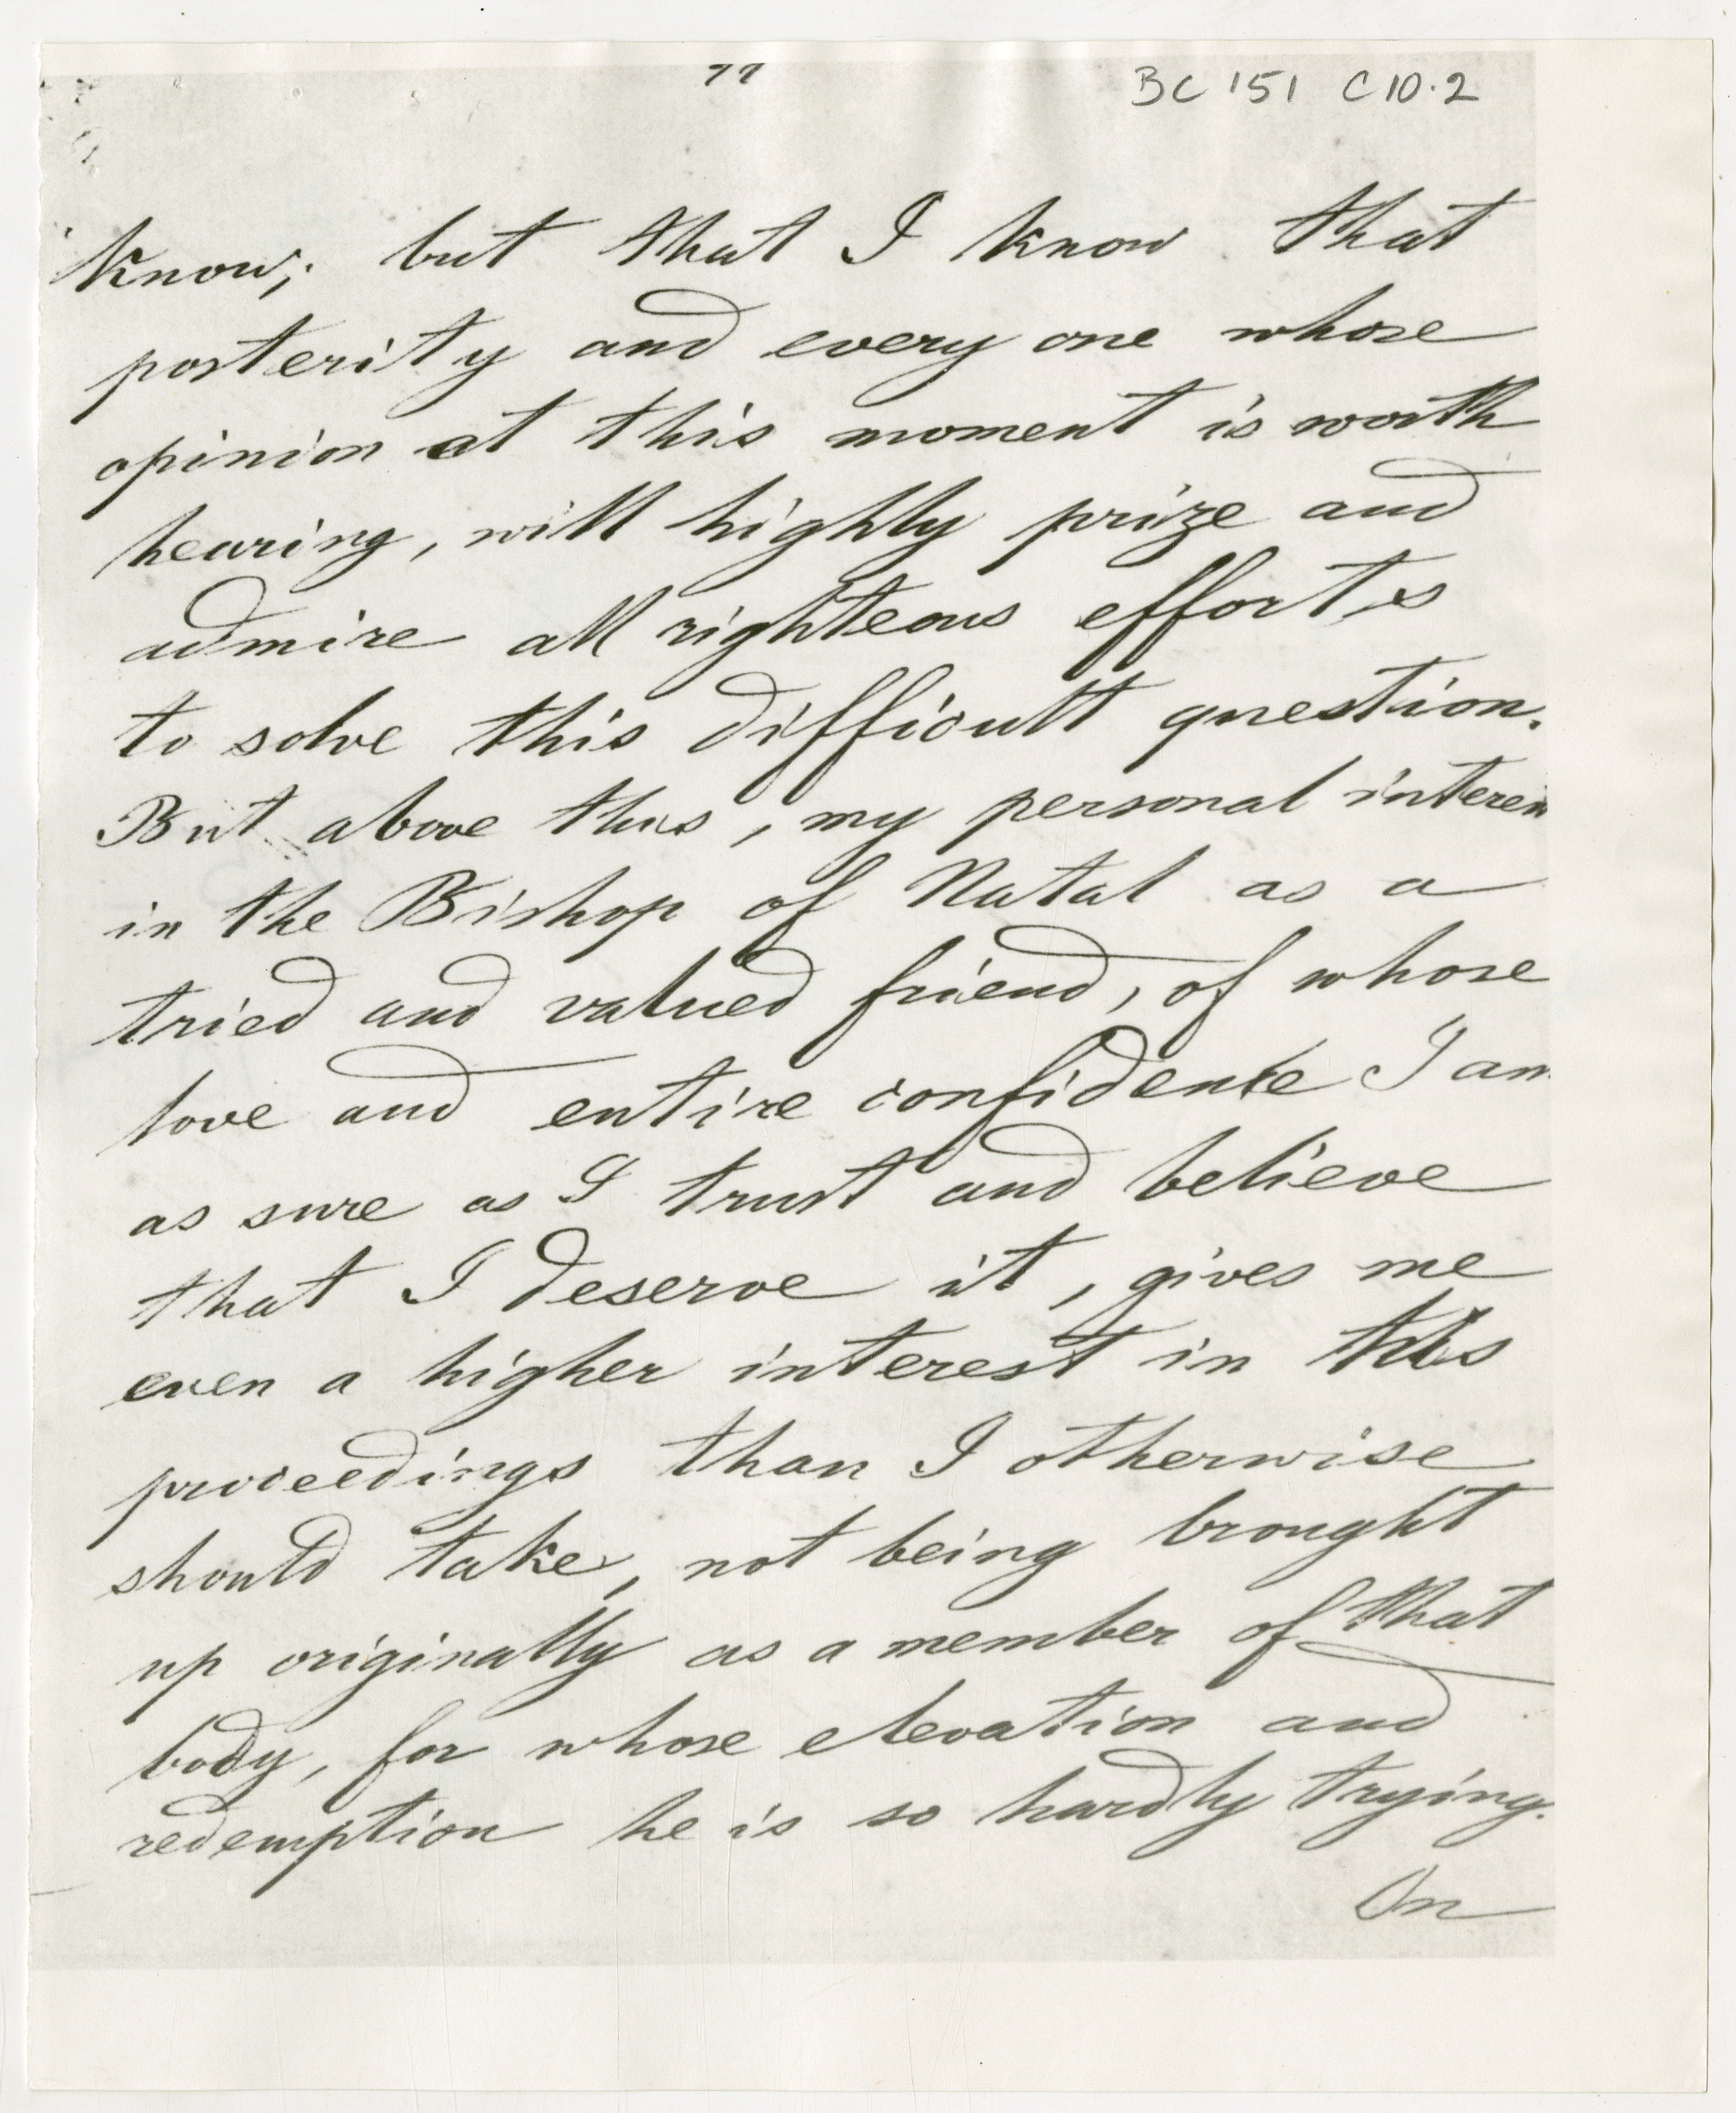 77
BC 151 C10.2
know; but that I know that
posterity and every one whose
opinion at this moment is worth
hearing, will highly prize and
admire all righteous efforts
to solve this difficult question.
But above this, my personal interes
in the Bishop of Natal as a
tried and valued friend, of whose
love and entire confidence I am
as sure as I trust and believe
that I deserve it, gives me
even a higher interest in this
proceedings than I otherwise
should take, not being brought
up originally as a member of that
body, for whose elevation and
redemption he is so hardly trying.
On